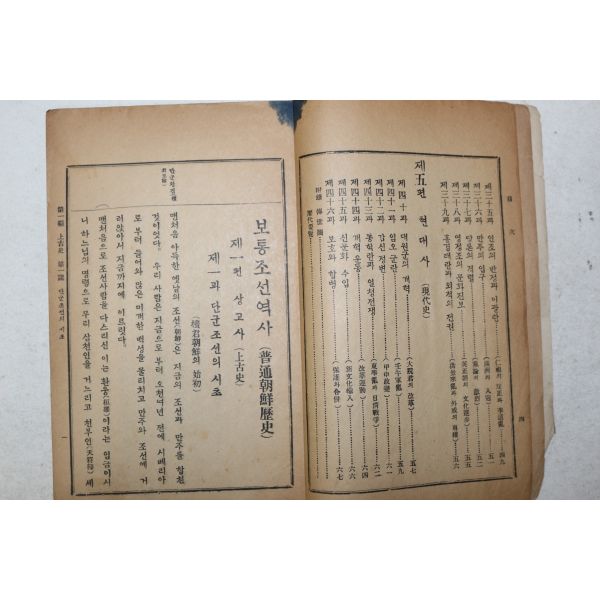 目 次
四
제三十五과 인조의 반정과 이괄란
四九
제三十六과 만주의 입구
五一
제三十七과 당론의 격렬
五二
제三十八과 영정조의 문화진보
五五
제三十九과 홍경래란과 외척의 전권
五六
제五편 현대사 (現代史)
제四十과 대원군의 개혁 (大院君의 改革) 五七
제四十一과 임오군란 (壬午軍亂) 五九
제四十二과 갑신정변 (甲申政變) 六一
제四十三과 동학란과 일청전쟁 (東學亂과 日淸戰爭) 六二
제四十四과 개혁운동 (改革運動) 六四
제四十五과 신문화 수입 (新文化輸入) 六六
제四十六과 보호와 합병 (保護와 合倂) 六七
附錄
歷代要覽
보통조선역사 (普通朝鮮歷史)
제一편 상고사 (上古史)
제一과 단군조선의 시초
(檀君朝鮮의 始初)
맨처음 아득한 옛날의 조선(朝鮮)은 지금의 조선과 만주를 합친
것이엇다. 우리 사람은 지금으로 부터 오천여년 전에 시베리아
로 부터 들어와 많은 미개한 백성을 물리치고 만주와 조선에 거
러앉아서 지금까지에 이르럿다.
맨처음으로 조선사람을 다스리신 이는 환웅(桓雄)이라는 임금이시
니 하느님의 명령으로 우리 삼천인을 거느리고 천부인(天符印) 세
第一編 上古史 第一課 단군조선의 시초
一